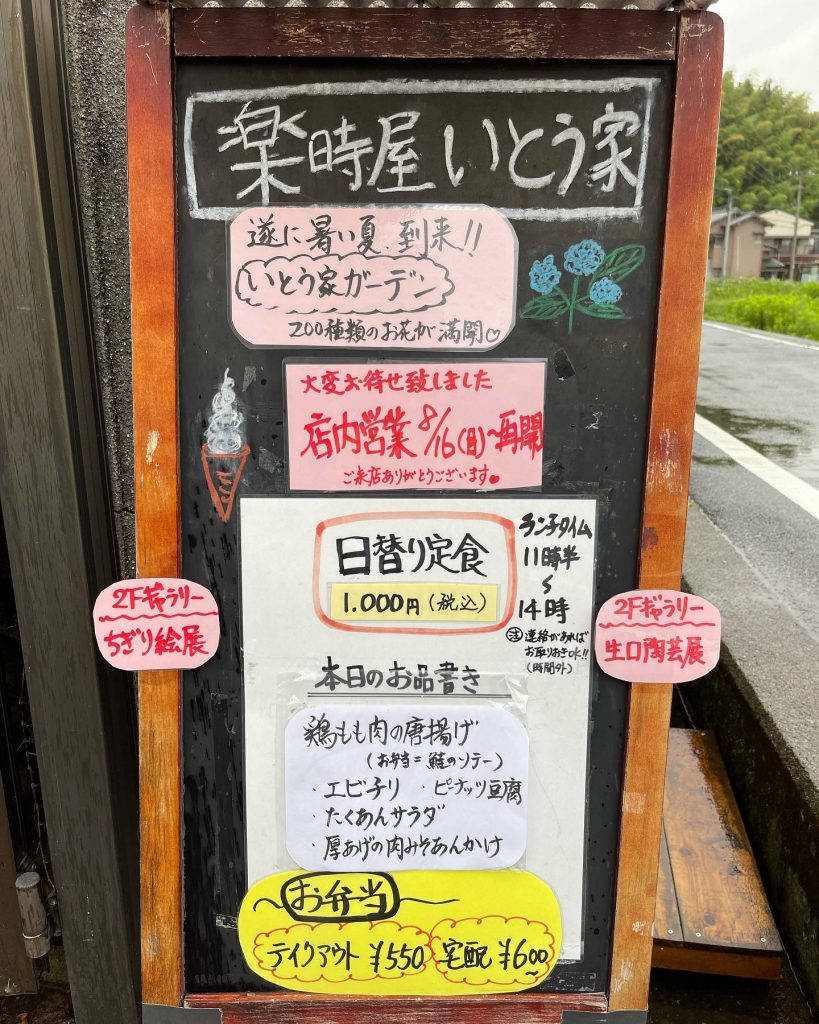 楽時屋 いとう家
遂に暑い夏、到来!!
いとう家ガーデン
200種類のお花が満開♡
大変お待せ致しました
店内営業 8/16(日)〜再開
ご来店ありがとうございます♥
日替り定食
1.000円(税込)
ランチタイム
11時半
〜
14時
注 連絡があれば
お取りおきOK!!
(時間外)
2Fギャラリー
ちぎり絵展
2Fギャラリー
生口陶芸展
本日のお品書き
鶏もも肉の唐揚げ
(お弁当=鮭のソテー)
・エビチリ ・ピーナッツ豆腐
・たくあんサラダ
・厚あげの肉みそあんかけ
〜お弁当〜
テイクアウト ¥550 宅配 ¥600〜